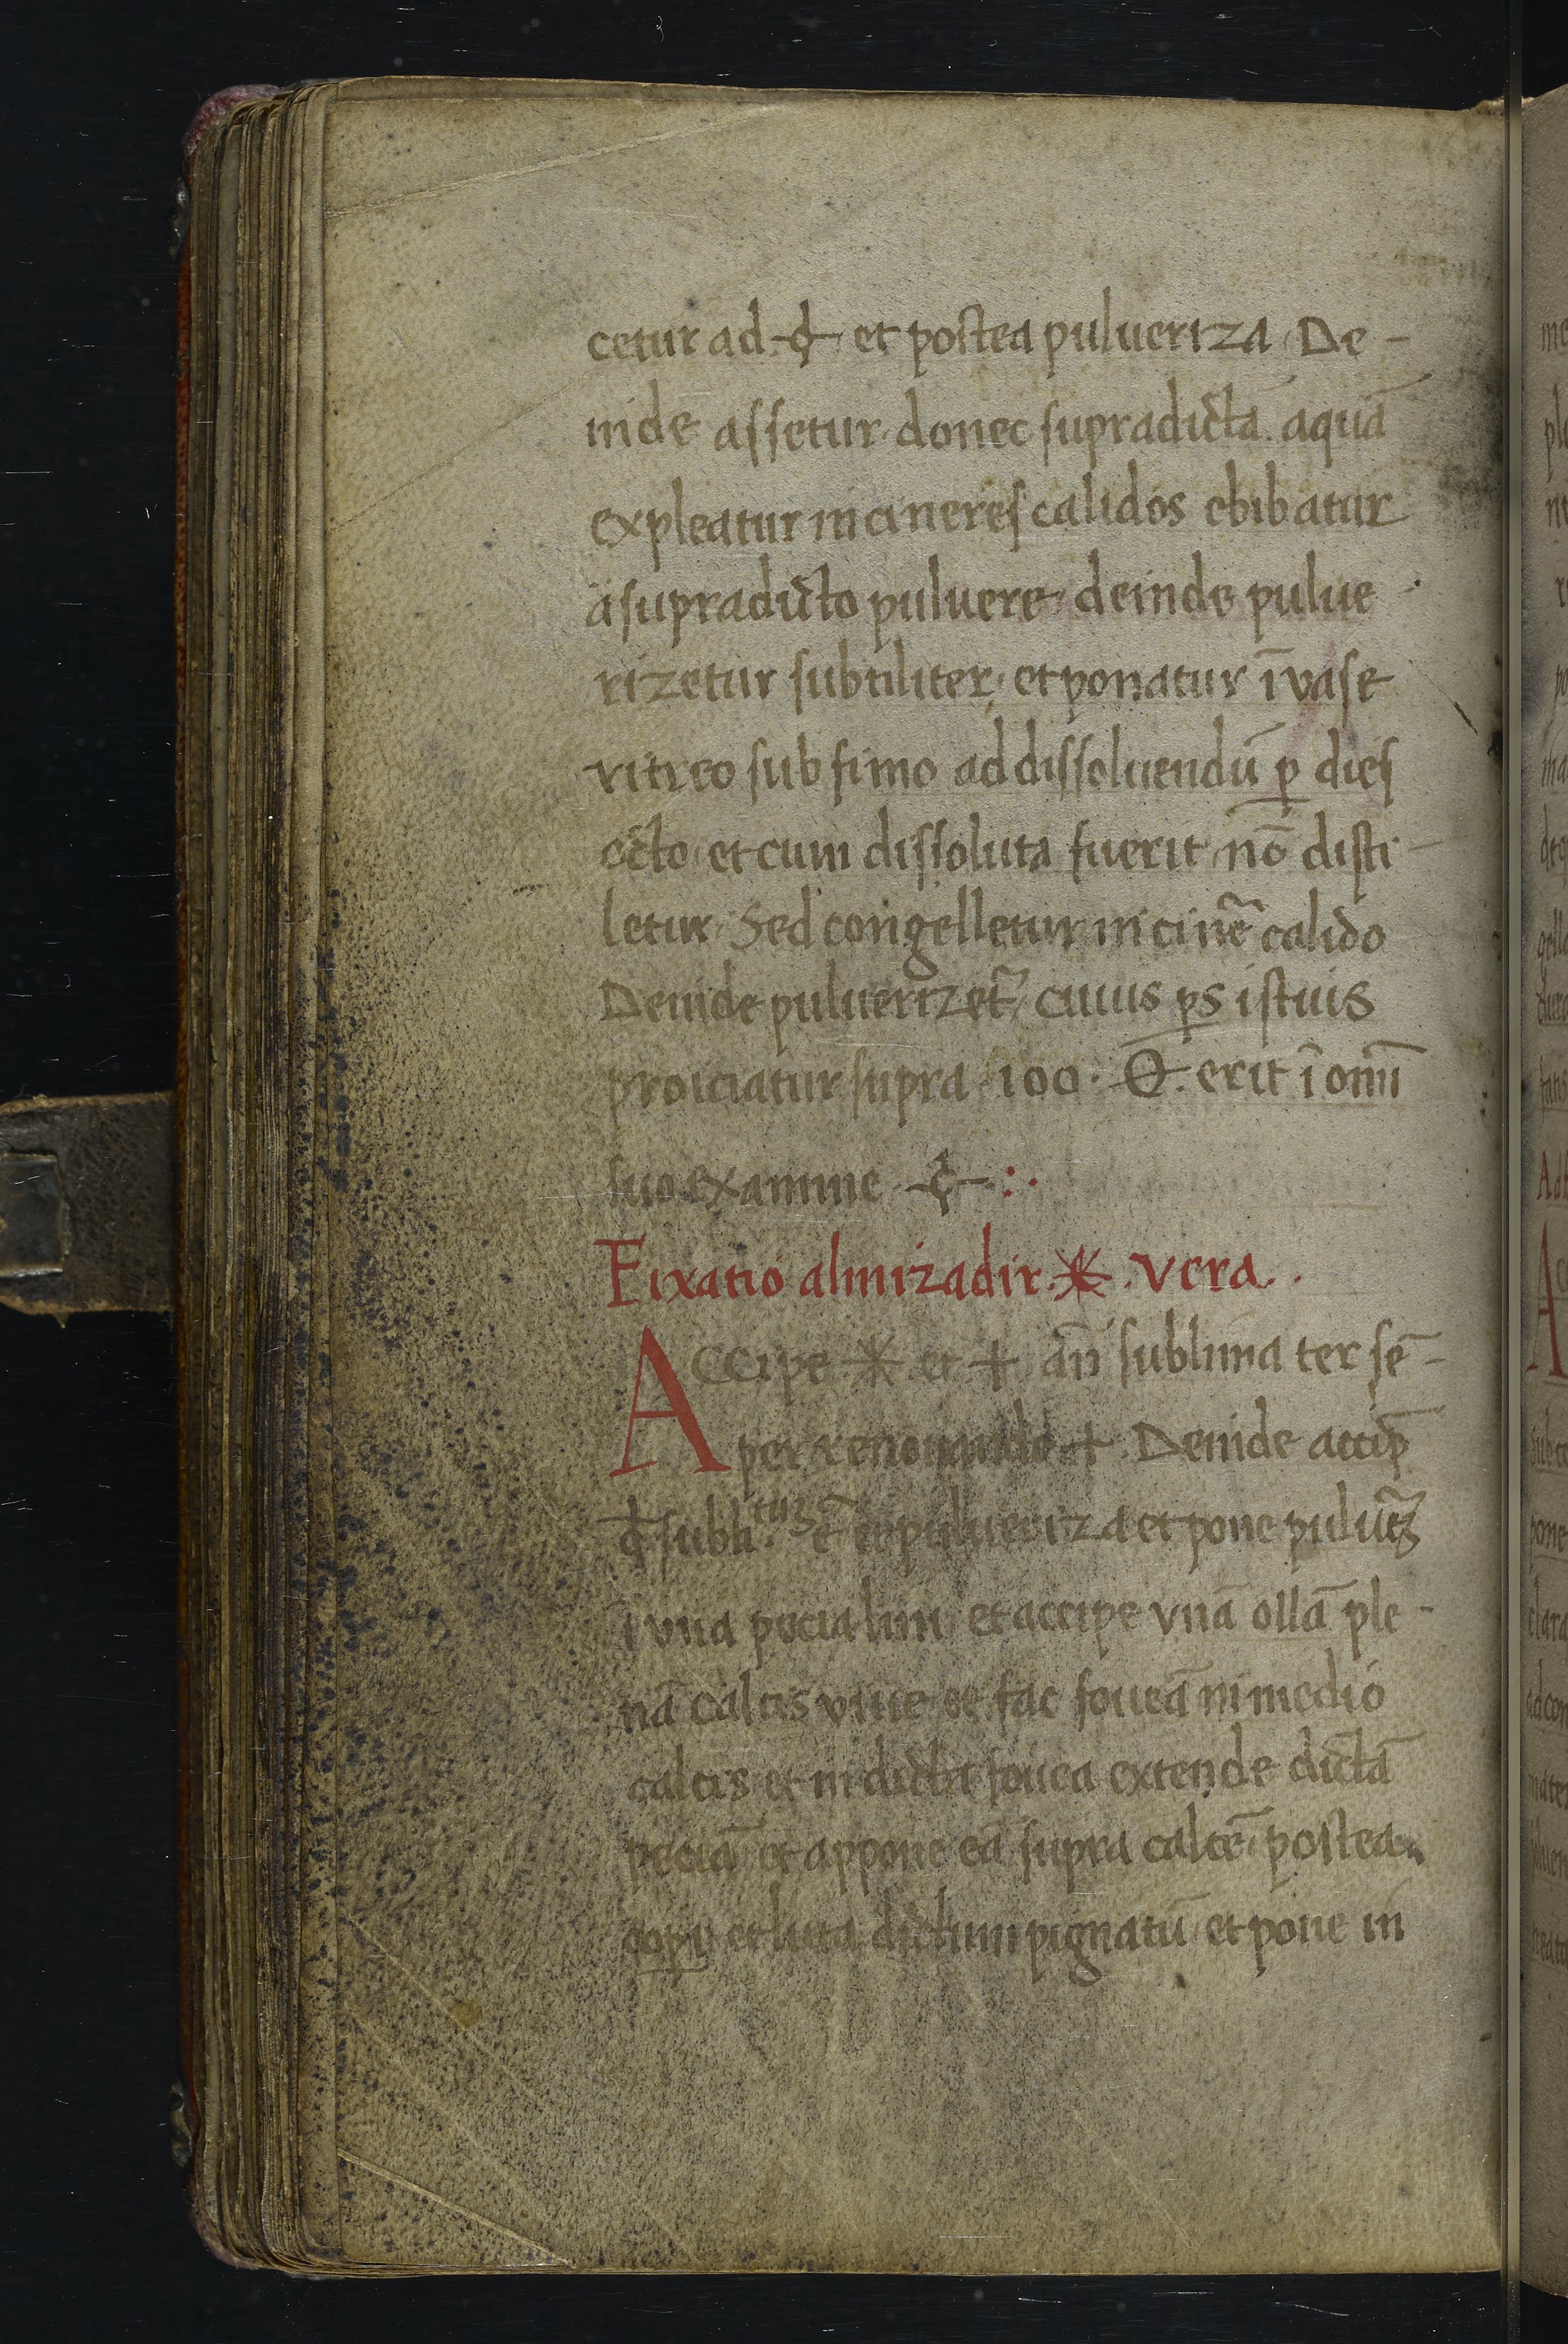 cetur ad et postea pulueriza De-
inde assetur donec supradictā aquā
expleatur in cineres calidos ebibatur
a supradicto puluere deinde pulue
rizetur subtiliter et ponatur ī vase
vitreo sub fimo ad dissoluendū ꝑ dies
octo et cum dissoluta fuerit nō disti-
letur Sed congelletur in cinē calido
Deinde puluerizet̄ cuius ꝑs istius
proiciatur supra 100 · erit ī omī
suo examine :·
Fixatio almizadir · vera ·
Accipe et + añ sublima ter sē-
per renouando + · Deinde accip̄
subli. tuȝ ē et pulueriza et pone puluēȝ
ī una pecia lini et accipe vnā ollā ple-
nā calcis viue et fac foueā in medio
calcis et in dicta fouea extende dictā
peciā et appone eā supra calcē postea
coꝑi et luta dictum pignatū et pone in